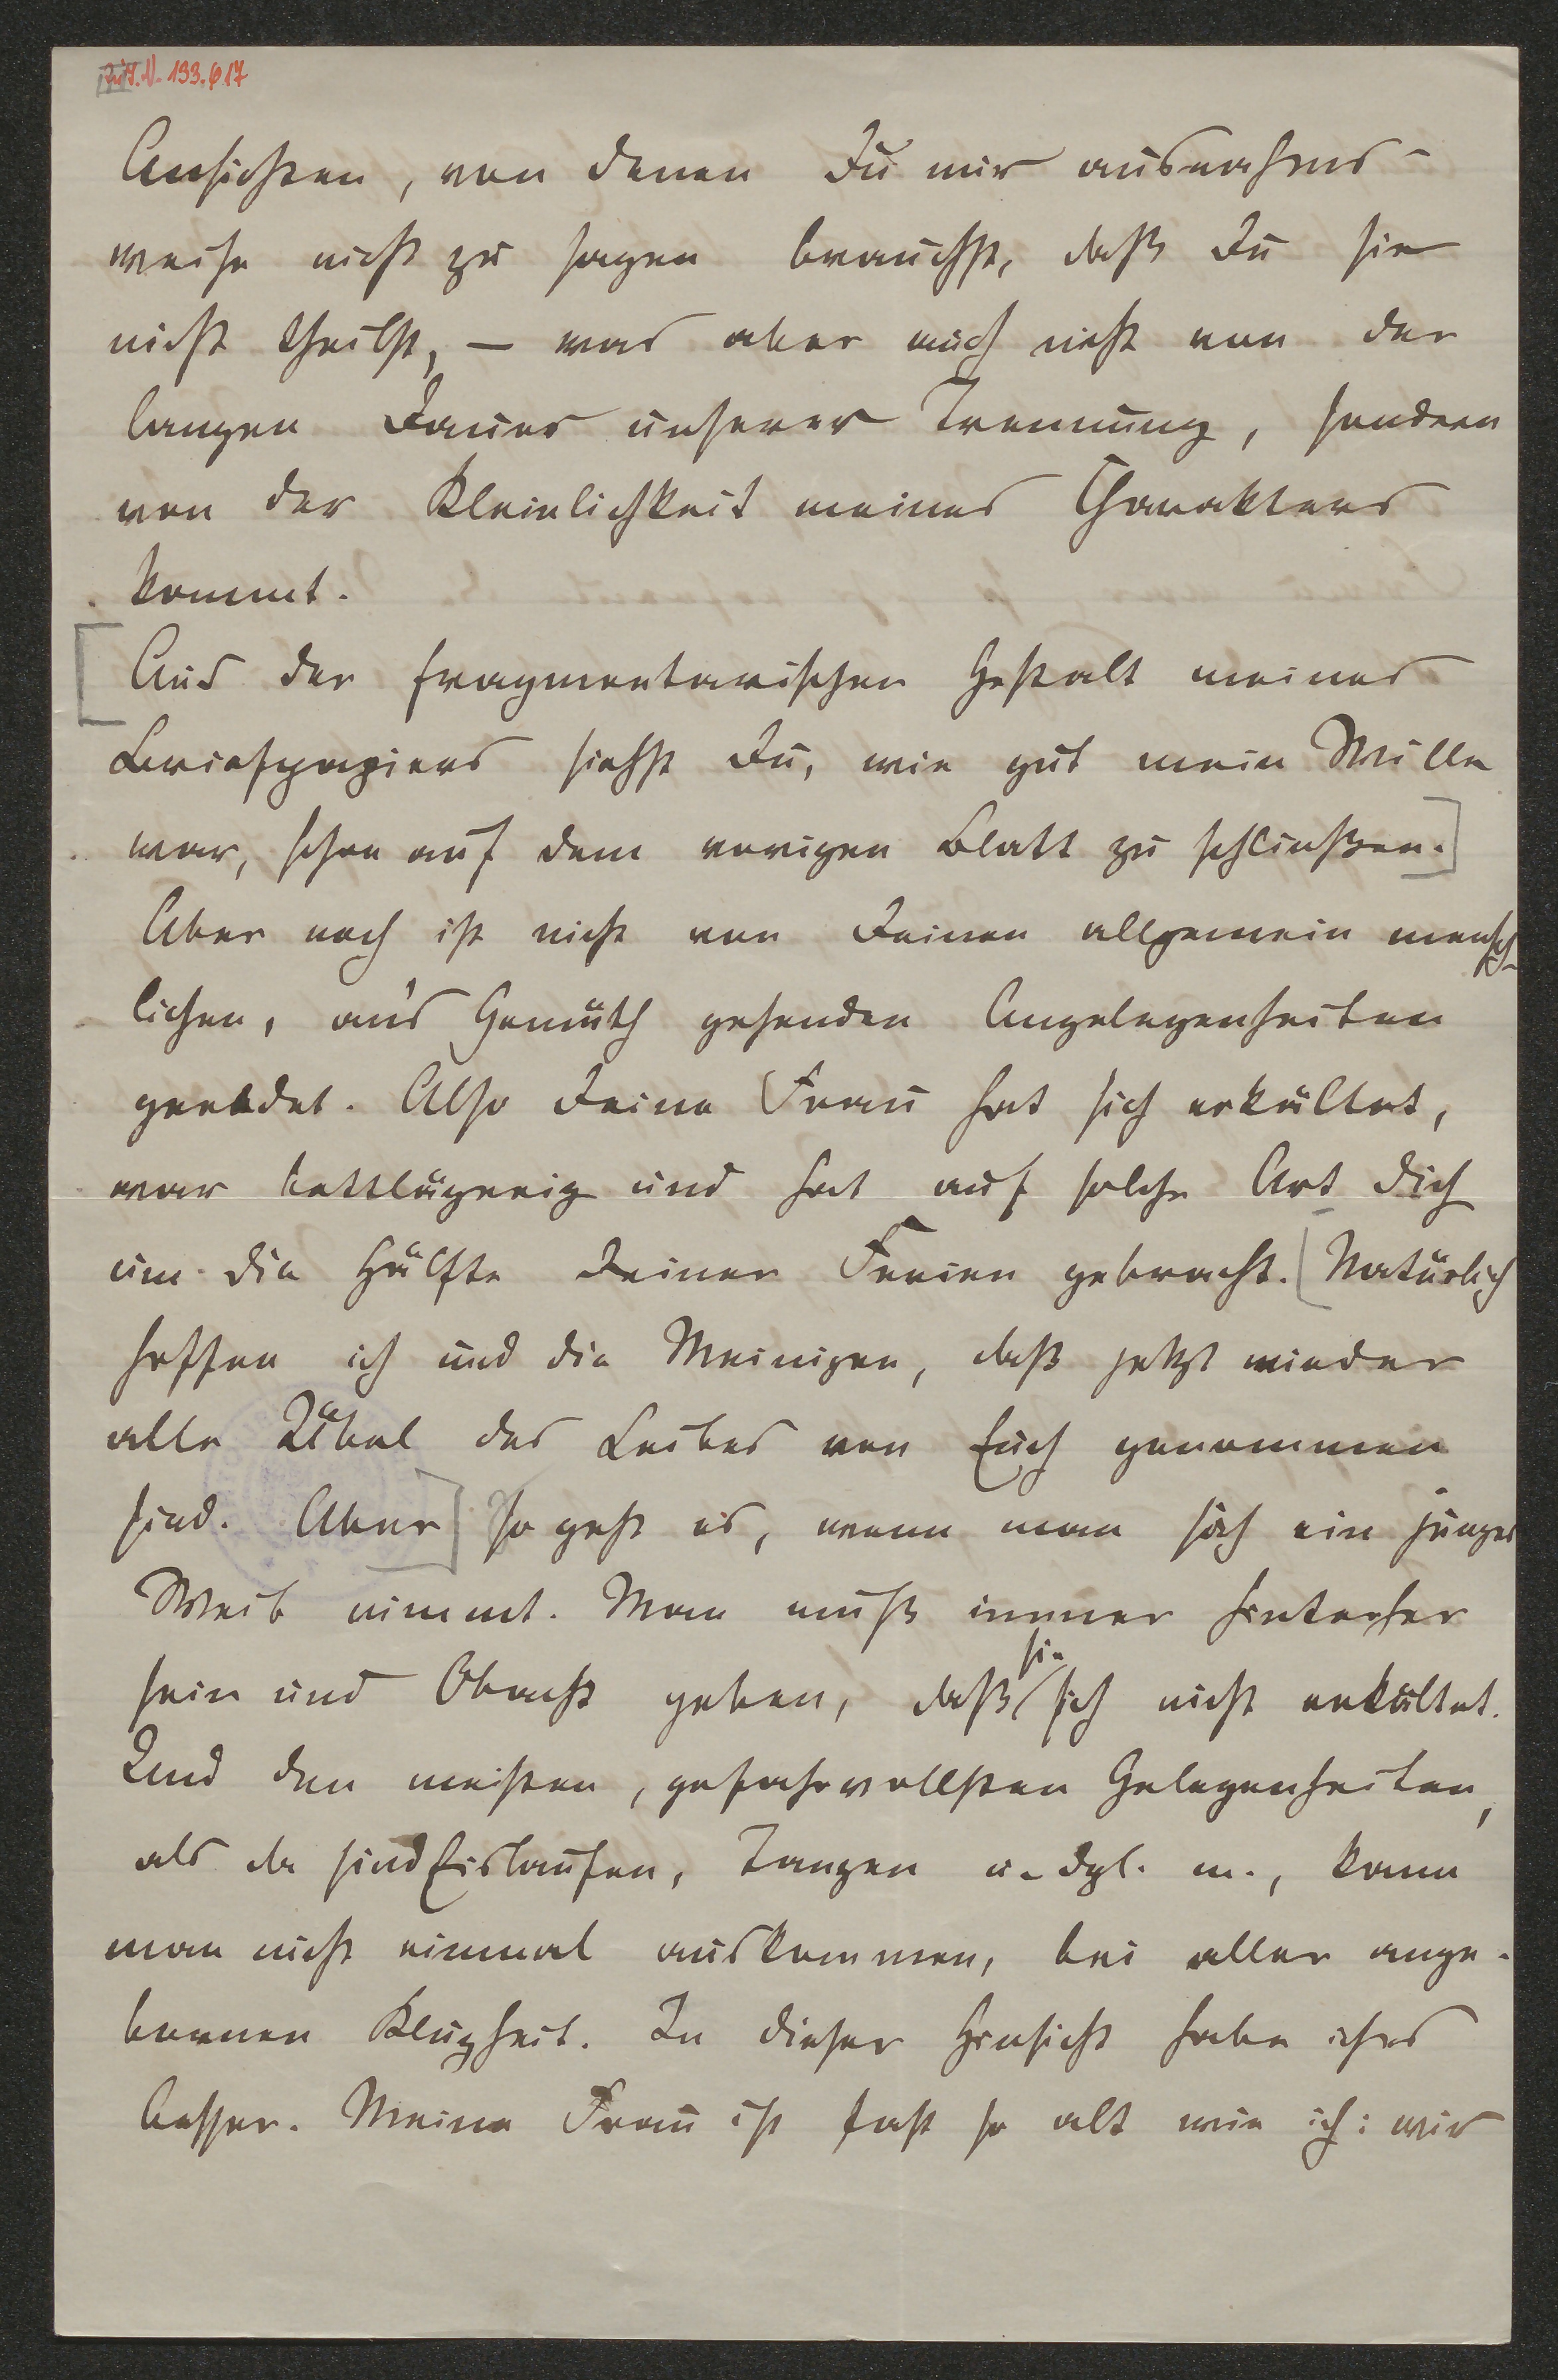 I.N. 199.617
Ansichten, von denen Du mir ausnahms-
weise nicht zu sagen brauchst, daß Du sie
nicht theilst, — was aber auch nicht von der
langen Dauer unserer Trennung, sondern
von der Kleinlichkeit meines Charakters
kommt.
[Aus der fragmentarischen Gestalt meines
Briefpapiers siehst Du, wie gut mein Wille
war, schon auf dem vorigen Blatt zu schließen.]
Aber noch ist nicht von Deinen allgemein mensch-
lichen, an's Gemüth gehenden Angelegenheiten
geredet. Also Deine Frau hat sich erkältet,
war bettlägerig und hat auf solche Art Dich
um die Hälfte Deiner Ferien gebracht. [Natürlich
hoffen ich und die Meinigen, daß jetzt wieder
alle Übel des Leibes von Euch genommen
sind. Aber] so geht es, wenn man sich ein junges
Weib nimmt. Man muß immer hinterher
sein und Obacht geben, daß sie sich nicht erkältet.
Und den meisten, gefahrvollsten Gelegenheiten,
als da sind Eislaufen, Tanzen u. dgl. m., kann
man nicht einmal auskommen, bei aller ange-
bornen Klugheit. In dieser Hinsicht habe ich's
besser. Meine Frau ist fast so alt wie ich: wir